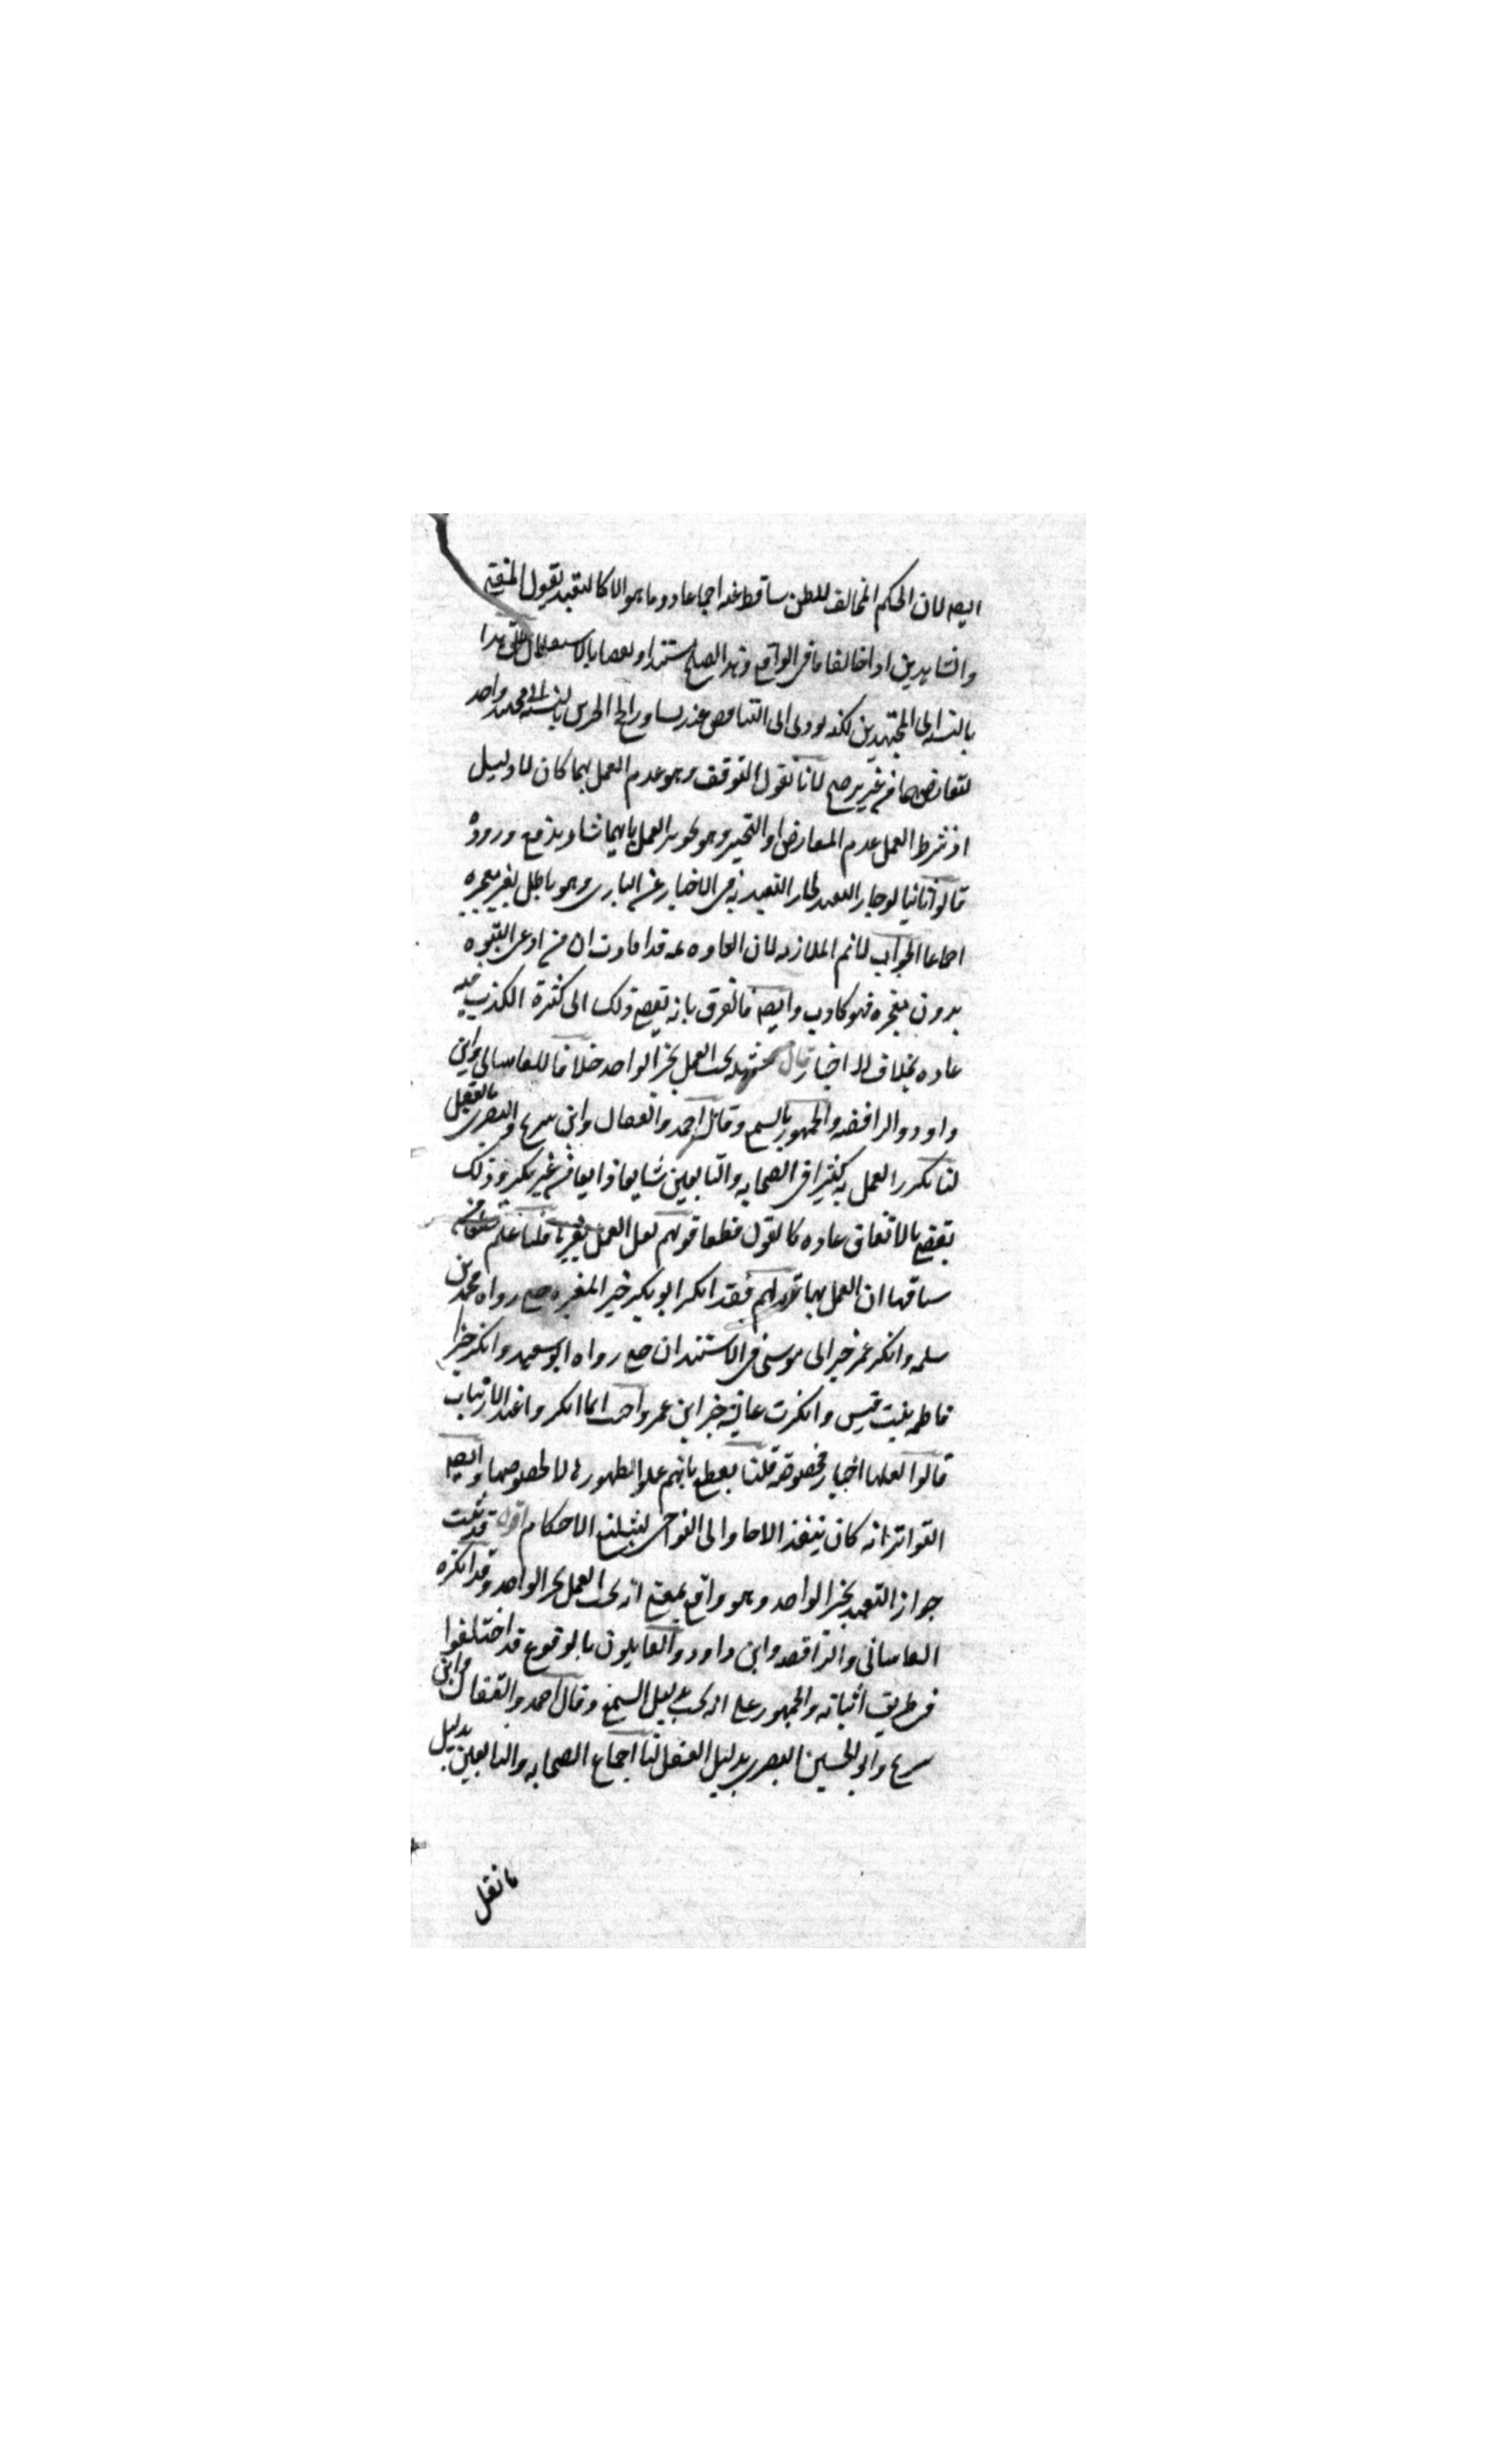 ايضه لان الحكم المخالف للظن ساقط عنه اجماعا دوما هو الا كالتعبد بقول المفتي
والشاهدين اذا خالفا ما فى الواقع وهذا يصلح مستندا ونقضا بالاستعلال هذا
بالنسبه الى المجتهدين لكنه يودى الى التناقض عند تساوى الخبرين بالنسبه الى مجتهد واحد
لتعارضهما من غير مرجح لانا نقول التوقف وهو عدم العمل بهما كان لا دليل
اذ شرط العمل عدم المعارض او التخيير وهو تجويز العمل بايهما شاء يدفع وروده
قالوا ثانيا لو جاز التعبد لجاز التعبد به فى الاخبار عن البارى وهو باطل بغير معجزه
اجماعا الجواب لا نم الملازمه لان العاده ثمه قد افادت ان من ادعى النبوه
بدون معجزه فهو كاذب وايضه فالفرق بانه يفضى ذلك الى كثرة الكذب فيه
عاده بخلاف الاخبار قال يجب العمل بخبر الواحد خلافا للقاسانى وابن
داود والرافضه والجمهور بالسمع وقال احمد والقفال وابن سريج والبصرى بالعقل
لنا تكرر العمل به كثيرا فى الصحابه والتابعين شايعا ذايعا من غير نكير وذلك
يقضى بالاتفاق عاده كالقول قطعا قولهم لعل العمل بغيرها قلنا علم من
سياقها ان العمل بها قولهم فقد انكر ابو بكر خبر المغيره حتى رواه محمد بن
سلمه وانكر عمر خبر ابى موسى فى الاستيذان حتى رواه ابو سعيد وانكر خبر
فاطمه بنت قيس وانكرت عايشه خبر ابن عمر واجيب انما انكروا عند الارتياب
قالوا لعلها اخبار مخصوصه قلنا نقطع بانهم عملوا لظهورها لا لخصوصها وايضه
التواتر انه كان ينفذ الاحاد الى النواحى لتبليغ الاحكام اقول قد ثبت
جواز التعبد بخبر الواحد وهو واقع بمعنى انه يجب العمل بخبر الواحد وقد انكره
القاسانى والرافضه وابن داود والقايلون بالوقوع قد اختلفوا
فى طريق اثباته والجمهور على انه يجب بدليل السمع وقال احمد والقفال وابن
سريج وابو الحسين البصرى بدليل العقل لنا اجماع الصحابه والتابعين بدليل
ما نقل